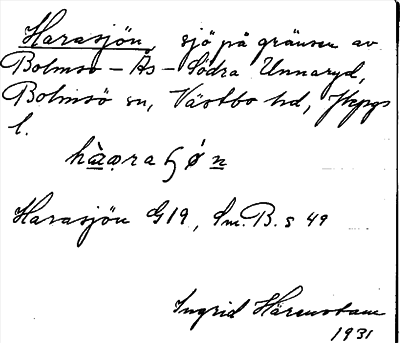 Harasjön, sjö på gränsen av
Bolmsö – Ås – Södra Unnaryd,
Bolmsö sn, Västbo hd, Jkpgs
l.
hàꭤra ɧ ǿ n
Harasjön G19, Sm. B. s 49
Ingrid
1931